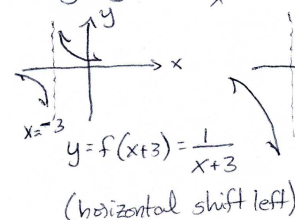 y
x
x=-3
y=f(x+3)=1/(x+3)
(horizontal shift left)